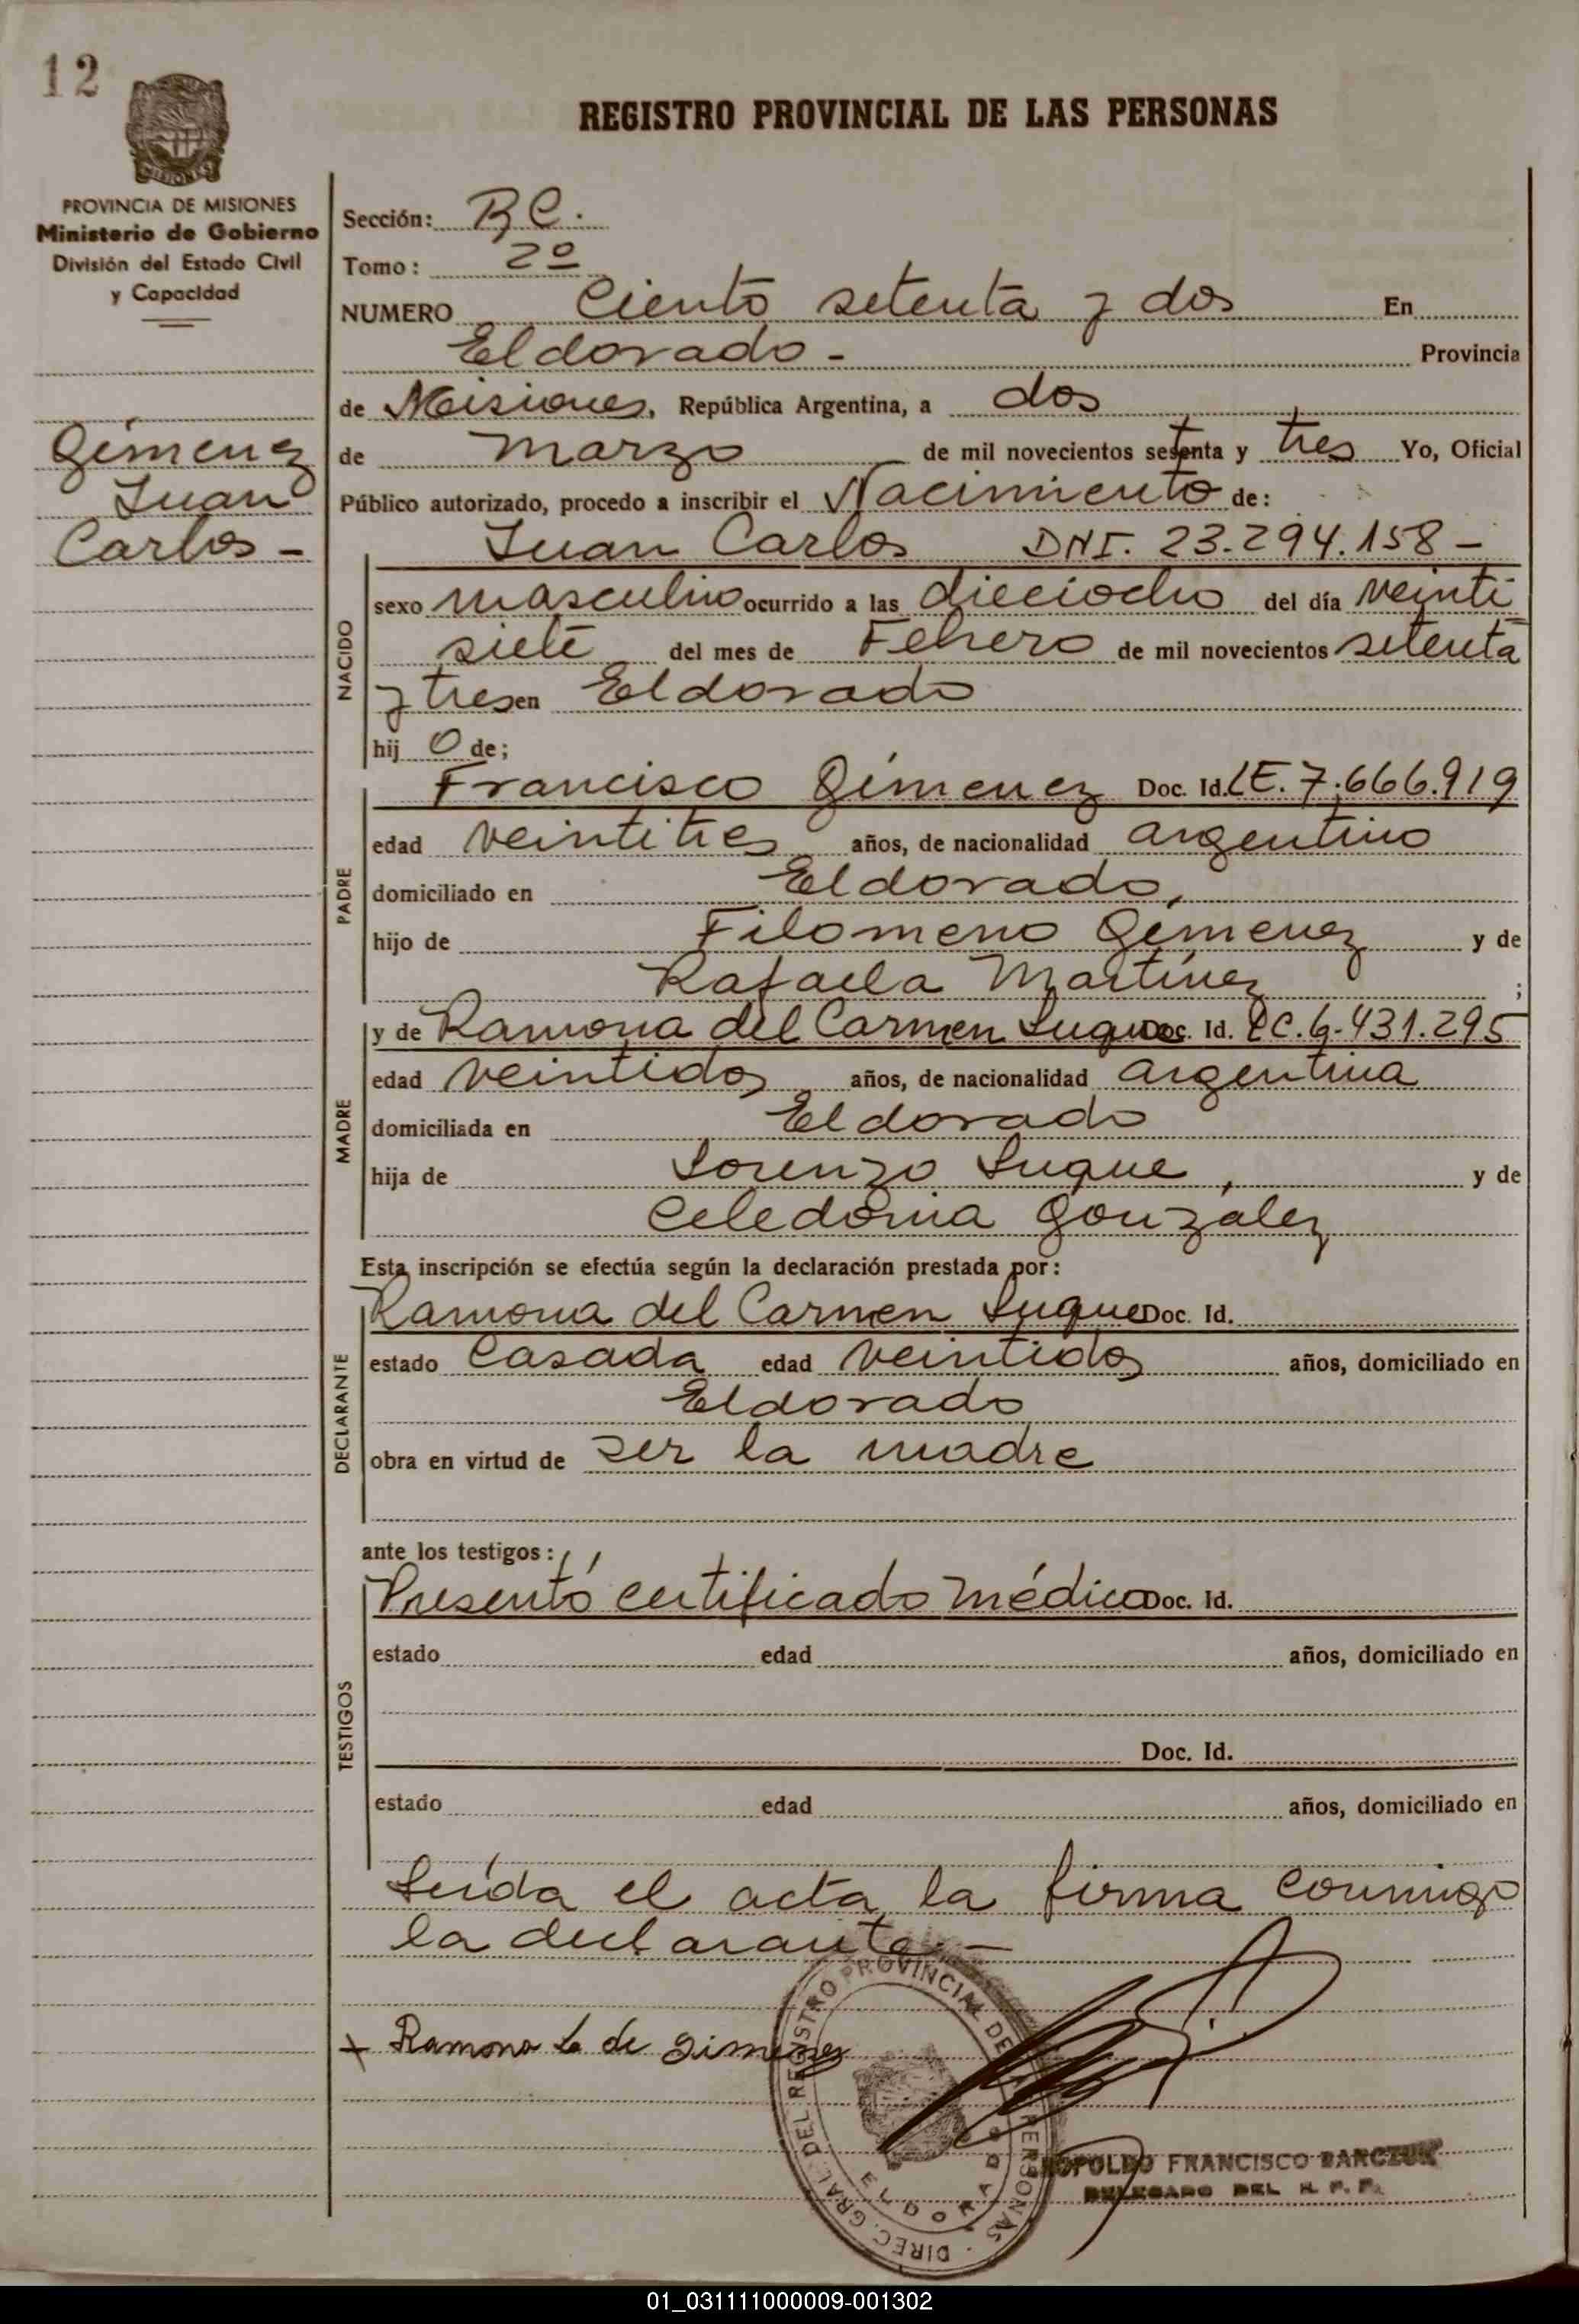 12
MISIONES
REGISTRO PROVINCIAL DE LAS PERSONAS
PROVINCIA DE MISIONES
Ministerio de Gobierno
División del Estado Civil
y Capacidad
Gimenez
Juan
Carlos -
Sección: B C.
Tomo: 2º
NUMERO Ciento setenta y dos En
Eldorado - Provincia
de Misiones, República Argentina, a dos
de marzo de mil novecientos setenta y tres Yo, Oficial
Público autorizado, procedo a inscribir el Nacimiento de:
Juan Carlos DNI. 23.294.158 -
NACIDO
sexo masculino ocurrido a las dieciocho del día veinti
siete del mes de Febrero de mil novecientos setenta
y tres en Eldorado
hij o de;
PADRE
Francisco Gimenez Doc. Id. LE. 7.666.919
edad veintitres años, de nacionalidad argentino
domiciliado en Eldorado,
hijo de Filomeno Gimenez y de
Rafaela Martínez ;
MADRE
y de Ramona del Carmen Luque Doc. Id. LC. 6.431.295
edad veintidos años, de nacionalidad argentina
domiciliada en Eldorado
hija de Lorenzo Luque, y de
Celedonia González
Esta inscripción se efectúa según la declaración prestada por:
DECLARANTE
Ramona del Carmen Luque Doc. Id.
estado Casada edad veintidos años, domiciliado en
Eldorado
obra en virtud de ser la madre
ante los testigos:
TESTIGOS
Presentó certificado médico Doc. Id.
estado edad años, domiciliado en
Doc. Id.
estado edad años, domiciliado en
Leída el acta la firma conmigo
la declarante. -
x Ramona L de Gimenez
DIREC. GRAL. DEL REGISTRO PROVINCIAL DE PERSONAS
ELDORADO
LEOPOLDO FRANCISCO BARCZUK
DELEGADO DEL R. P. P.
01_031111000009-001302